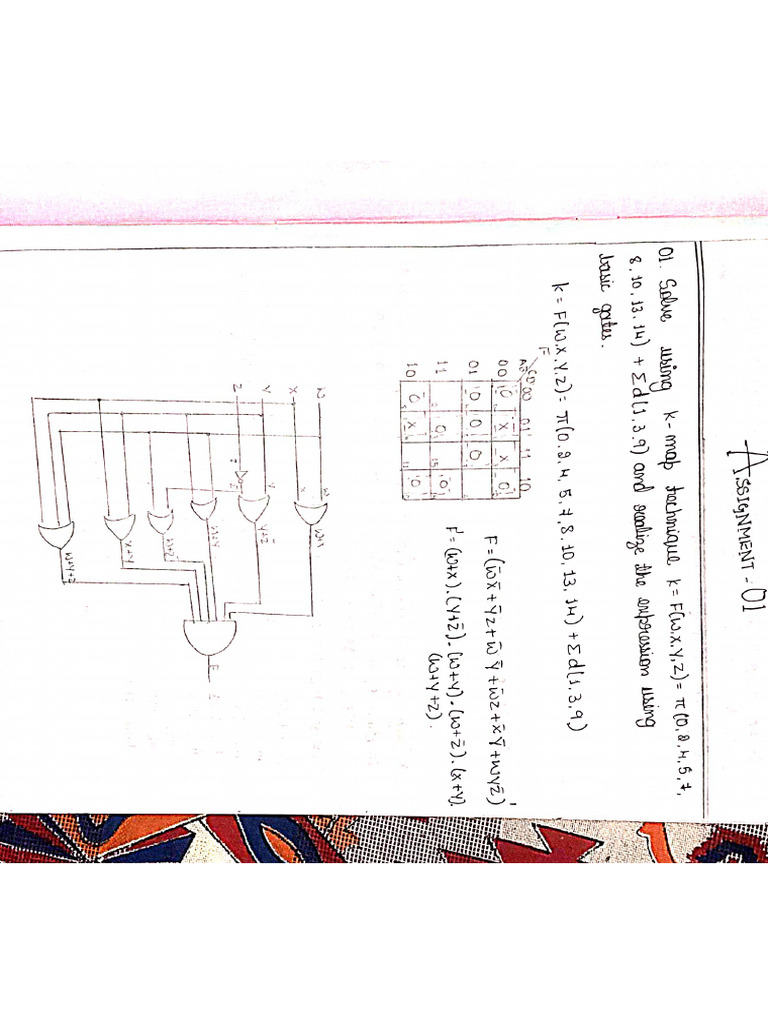 ASSIGNMENT - 01
01. Solve using K-map technique K = F(W,X,Y,Z) = π(0,2,4,5,7,
8,10,13,14) + Σd(1,3,9) and realize the expression using
basic gates.
K = F(W,X,Y,Z) = π(0,2,4,5,7,8,10,13,14) + Σd(1,3,9)
F
AB CD 00 01 11 10
00 0 X X 0
01 0 0 0
11 0 0
10 0 X 0
F = (w̄x̄ + ȳz + w̄ȳ + w̄z + x̄ȳ + wyz̄)'
F = (w+x).(y+z̄).(w+y).(w+z̄).(x+y).
(w̄+ȳ+z).
W
X
Y
Z
w+x
y+z̄
w+y
w+z̄
x+y
w+y+z
F